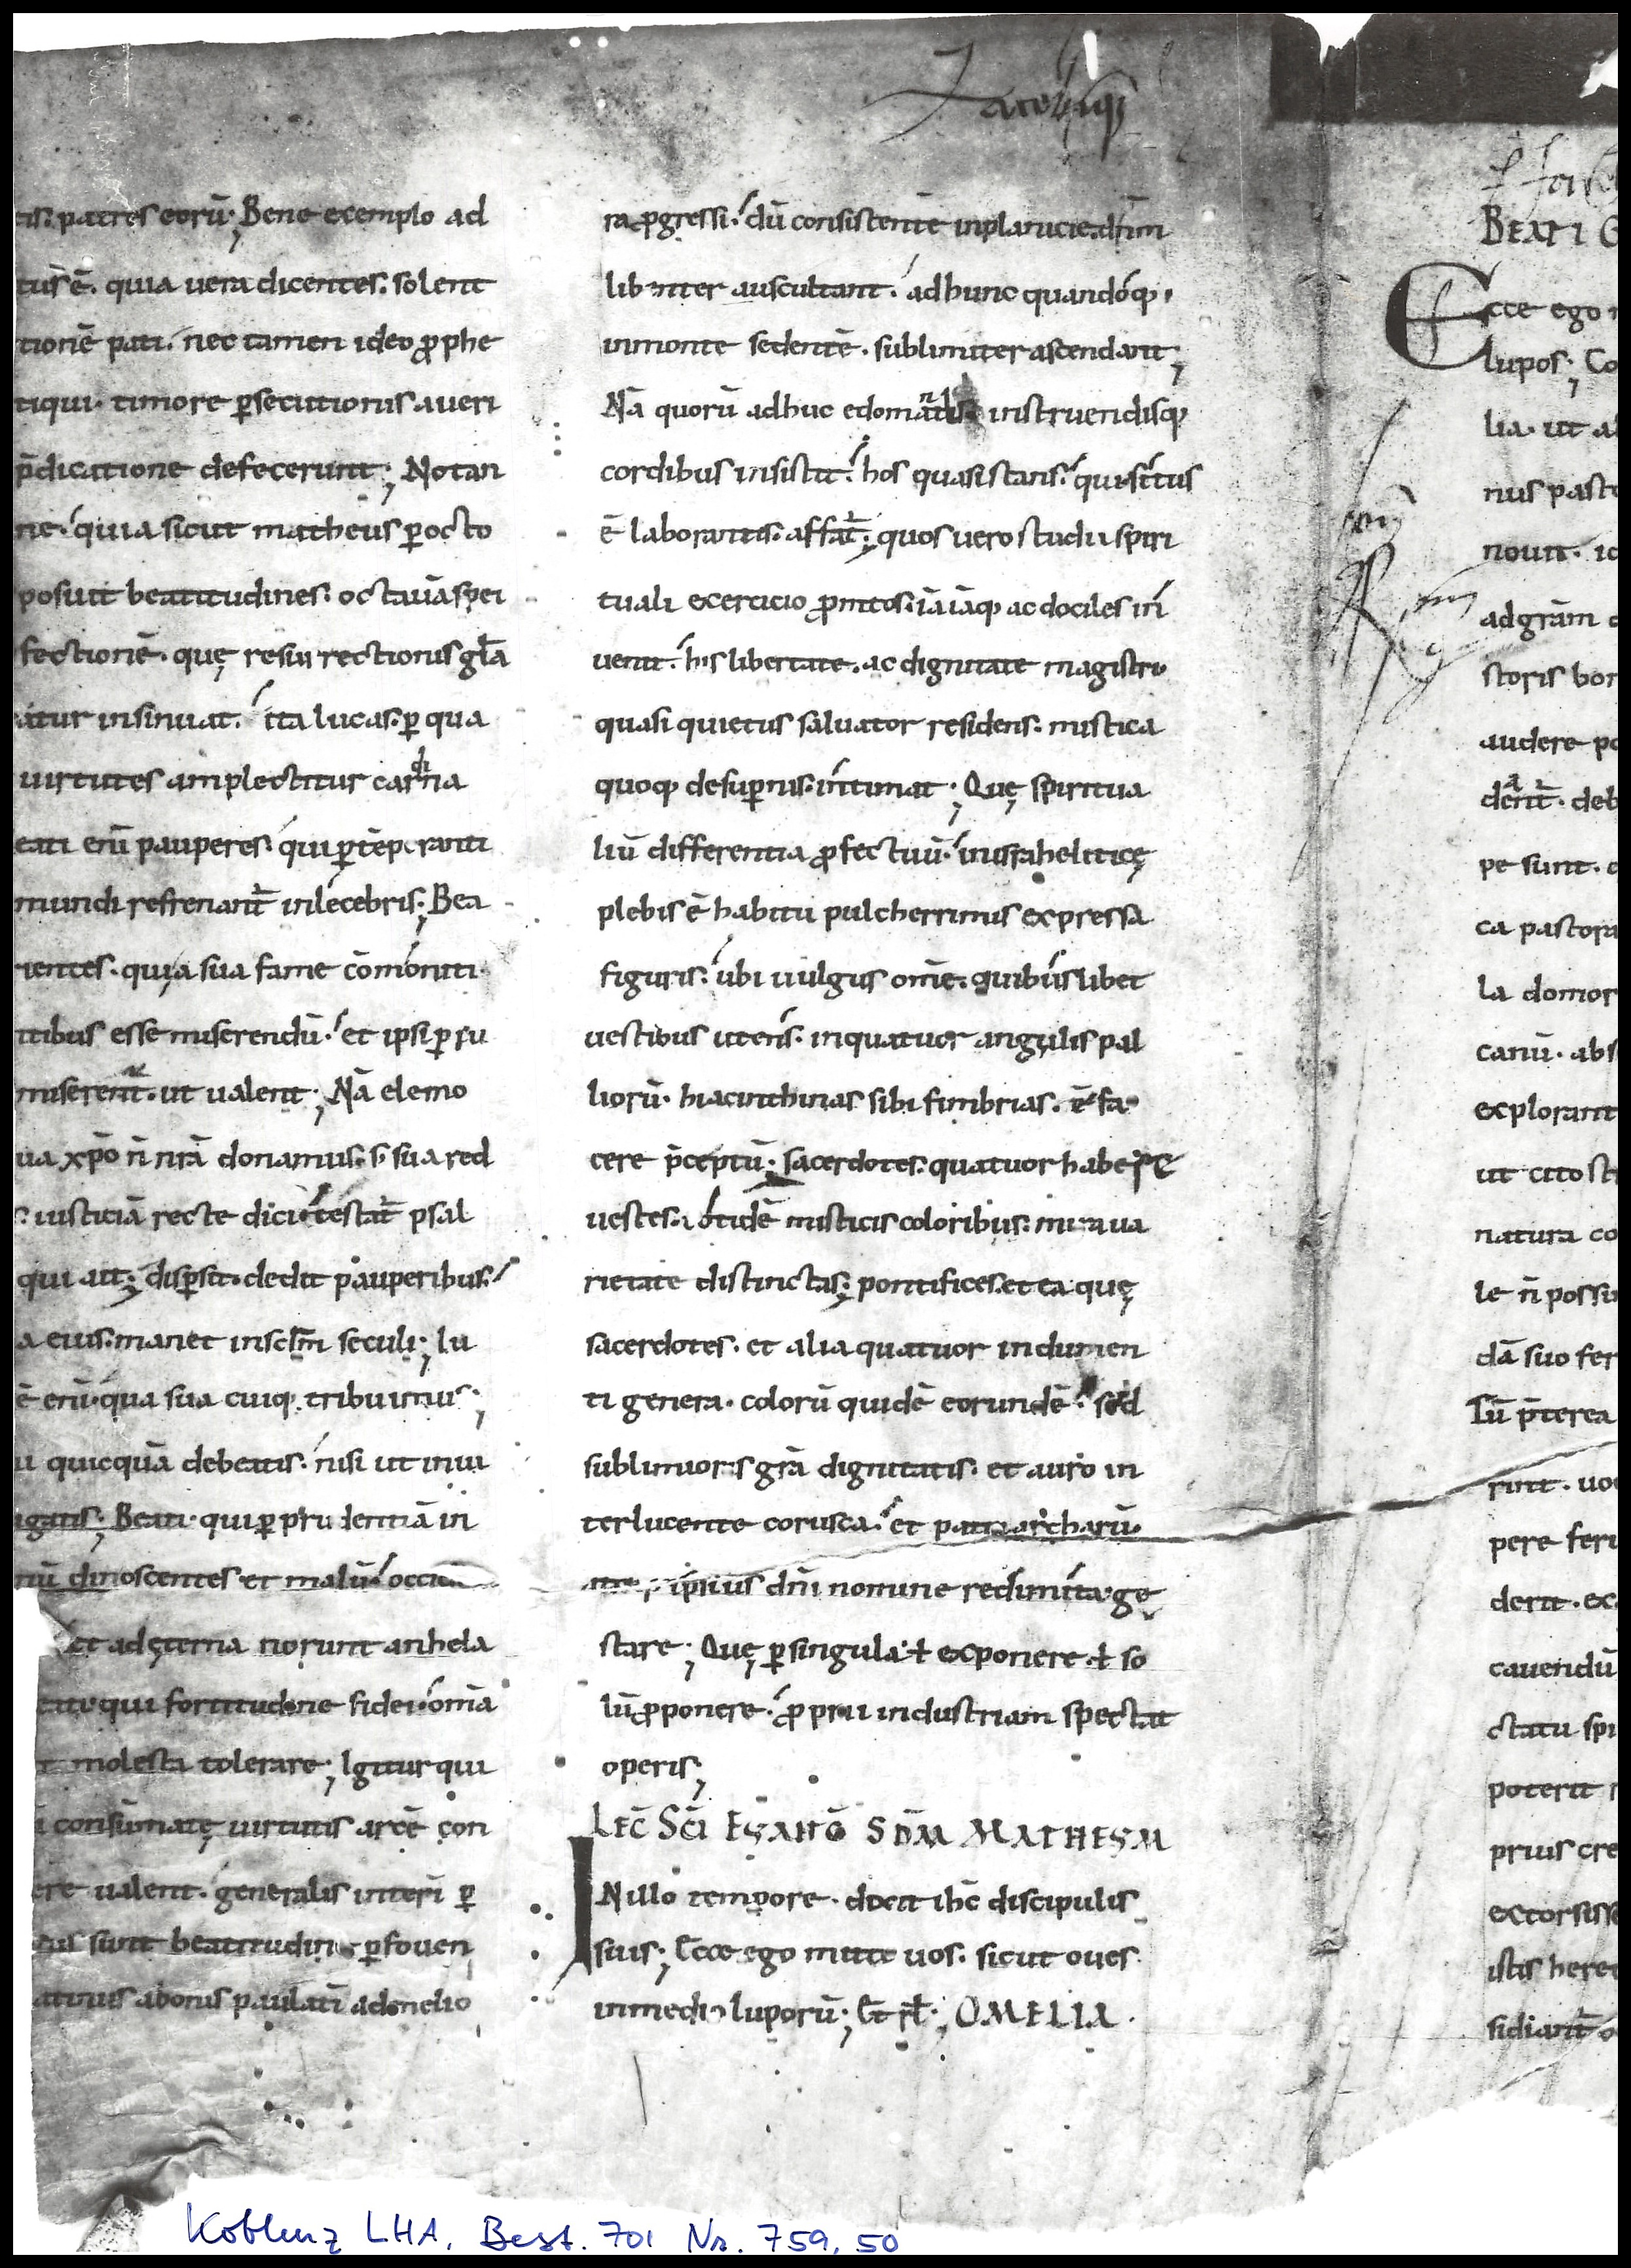 tis. patres eorū; Bene exemplo ad
tus ē. quia uera dicentes. solent
tionē pati. nec tamen ideo ꝓphe
tiqui. timore ꝑsecutionis aueri
p̄dicatione defecerunt; Notan
ne. quia sicut matheus ꝑ octo
posuit beatitudines. octauā spei
fectionē. quę resurrectionis gl̄a
atur insinuat. ita lucas. ꝑ qua
uirtutes amplectitur cardina
eati enī pauperes. qui ꝑ tēperanti
mundi refrenant̄ inlecebris; Bea
rientes. quia sua fame cōmoniti
ntibus esse miserendū. et ipsi ꝑ su
miserent̄. ut ualent; Nā elemo
ua xp̄o n̄ nr̄a donamus. s; sua red
: iusticiā recte dici testat̄ psal
qui ait; dispersit. dedit pauperibus.
a eius. manet in sclm̄ seculi; Iu
ē enī. qua sua cuiq; tribuimus;
u quicquā debeatis. nisi ut inui
igatis; Beati qui ꝑ prudentiā in
nū dinoscentes et malū.
et ad ęterna norunt anhela
qui fortitudine fidei omīa
molesta tolerare; Igitur qui
consūmatę uirtutis arcē con
ere ualent. generalis interī ꝑ
sunt beatitudin ꝑfouen
atinus a bonis paulatī ad melio
Zacerhiqꝫ
ra ꝓgressi. dū consistente in planicie. dn̄m
libenter auscultant. ad hunc quandoq;
in monte sedentē. sublimiter ascendant;
Nā quorū adhuc edomandis instruendisq;
cordibus insistit. hos quasi stans. qui situs
ē laborantis. affat̄; quos uero studii spiri
tuali exercicio ꝓmtos. iā iāq; ac dociles in
uenit. his libertate. ac dignitate magistri
quasi quietus saluator residens. mistica
quoq; de supernis. intimat; Quę spiritua
liū differentia ꝓfectuū. in israheliticę
plebis ē habitu pulcherrimis expressa
figuris. ubi uulgus omē. quibuslibet
uestibus utens. in quatuor angulis pal
liorū. hiacinthinas sibi fimbrias. ē fa
cere p̄ceptū; sacerdotes. quatuor habere
uestes. itidē misticis coloribus. mira ua
rietate distinctas; pontifices. et ea quę
sacerdotes. et alia quatuor indumen
ti genera. colorū quidē eorundē. sed
sublimioris gr̄a dignitatis. et auro in
terlucente corusca. et patriarcharū
ipsius dn̄i nomine redimita. ge
stare; Quę ꝑ singula. ł exponere. ł so
lū ꝓponere. ꝓprii industriam spectat
operis;
LEC̄ SC̄I EVANḠ SD̄M MATHEVM
IN illo tempore. dixit ih̄c discipulis
suis; Ecce ego mitto uos. sicut oues
in medio luporū; Et rl̄; OMELIA.
BEATI G
Ecce ego
lupos; Co
lia. ut al
nus pasto
nouit. ic
ad grām
storis bon
audere po
dent̄. deb
pe sunt.
ca pastora
la domor
canū. abs
explorant
ut cito st
natura co
le n̄ possi
dā suo fer
Tū p̄terea
rint. uo
pere feri
derit. ex
cauendū
ctatu spi
poterit
prius cre
extorsiss
istis here
sidiant̄
Koblenz LHA, Best. 701 Nr. 759, 50